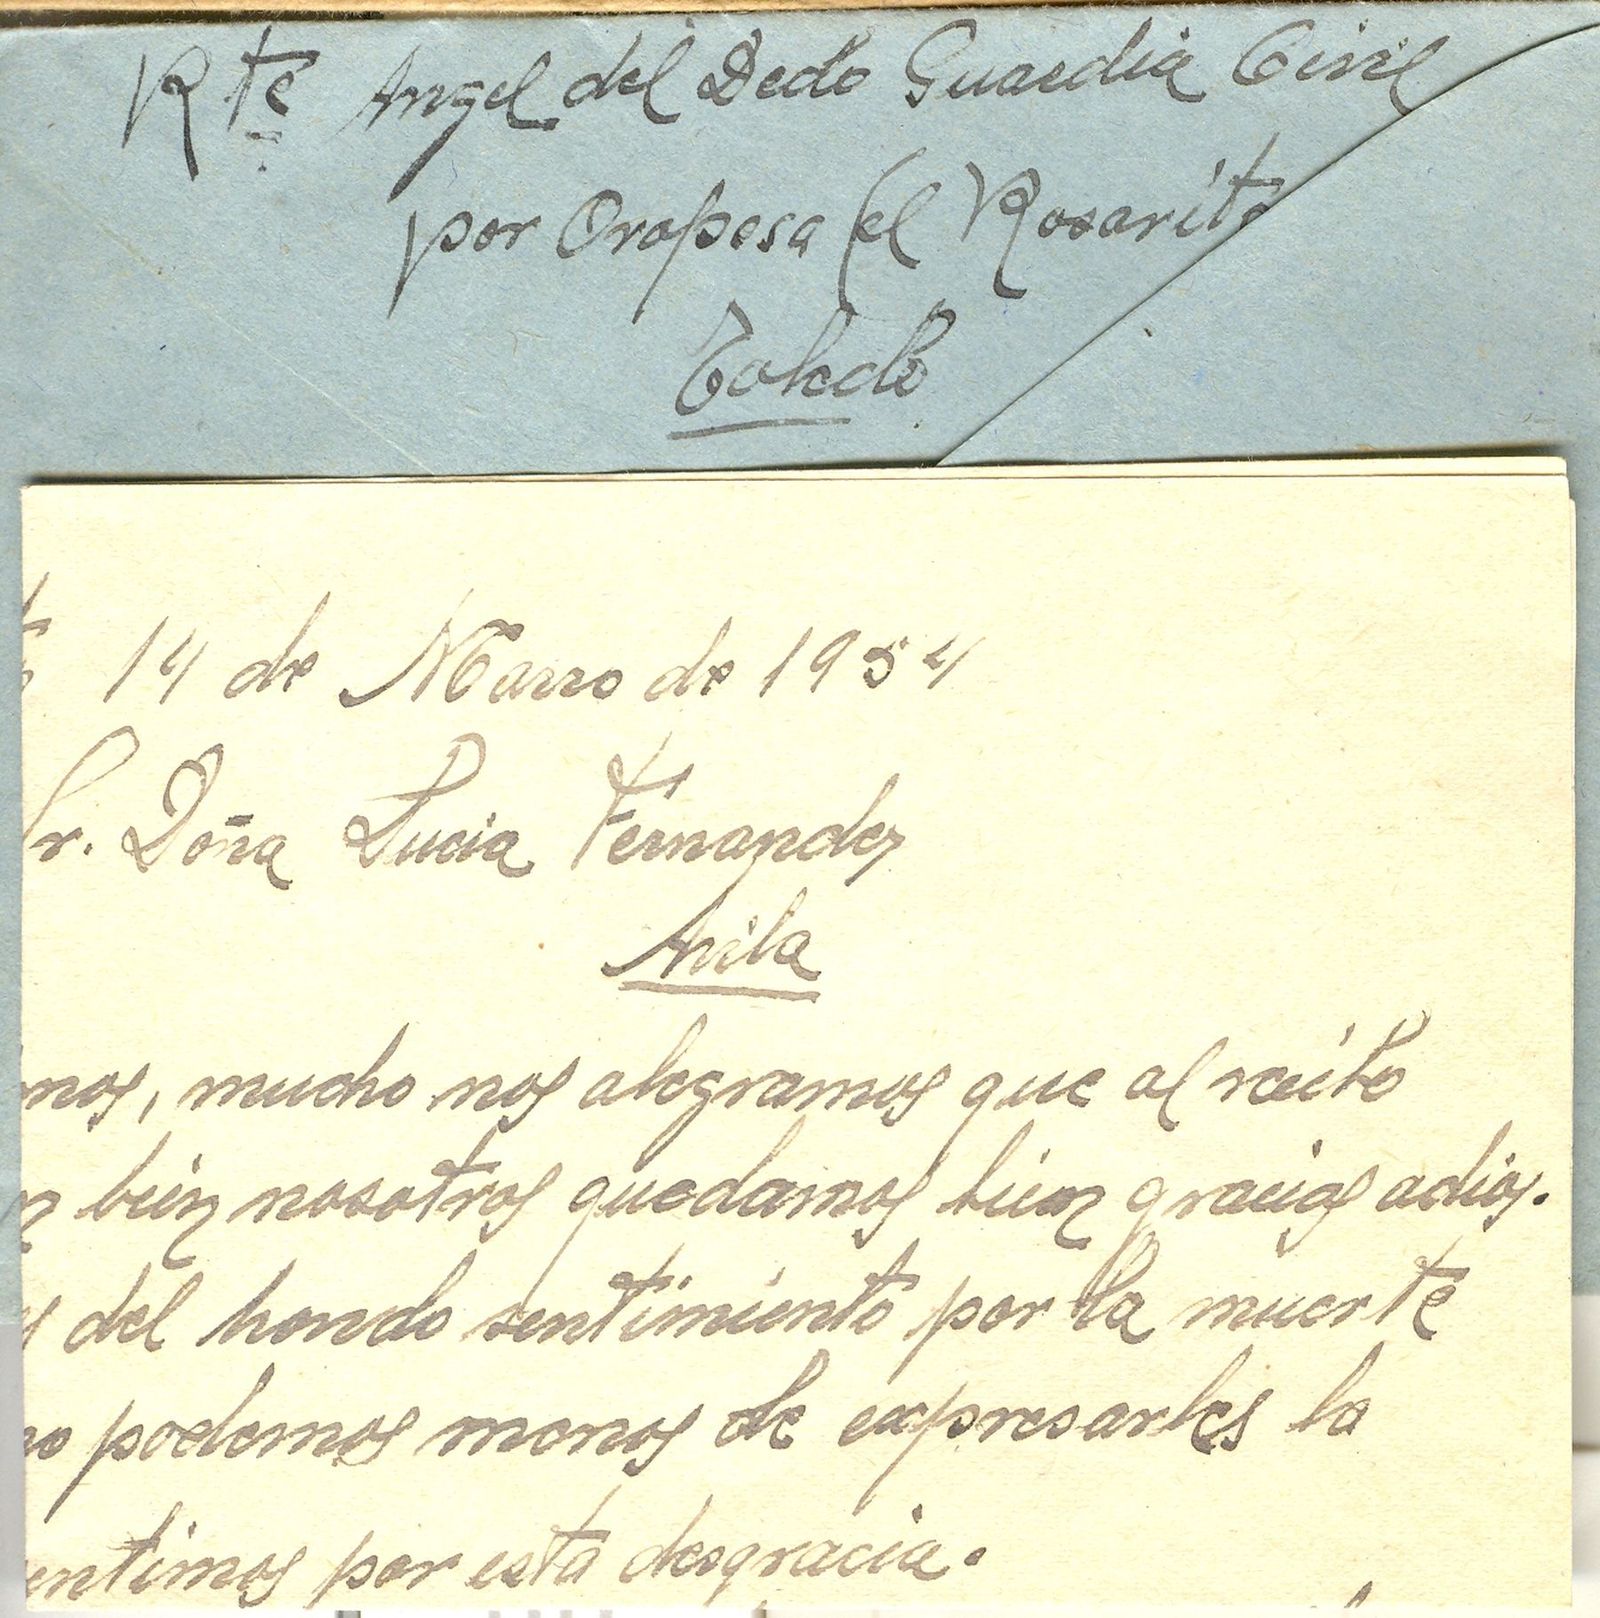 Rte Angel del Dedo Guardia Civil
por Oropesa (el Rosarito
Toledo
14 de Marzo de 1954
Sr. Doña Lucia Fernandez
Avila
mos, mucho nos alegramos que al recibo
n bein nosotros quedamos bien gracias adios.
s del hondo sentimiento por la muerte
no podemos menos de expresarles lo
entimos por esta desgracia.